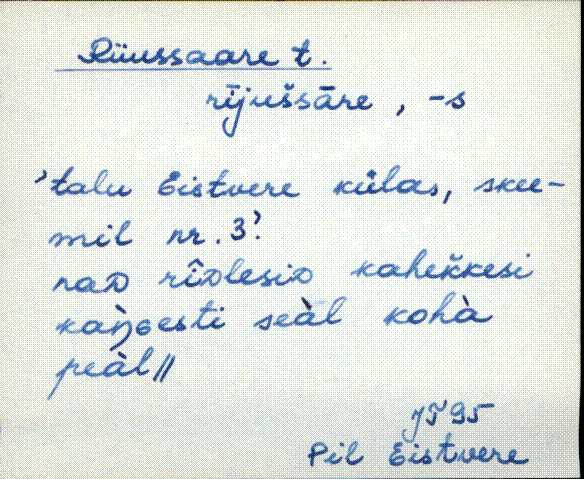 Riiussaare t.
rījušsāre, -s
'talu Eistvere külas, skee-
mil nr. 3'.
naᴅ rîᴅlesiᴅ kahekkesi
kaŋGesti seàl kohà
peàl //
JT 95
Pil Eistvere